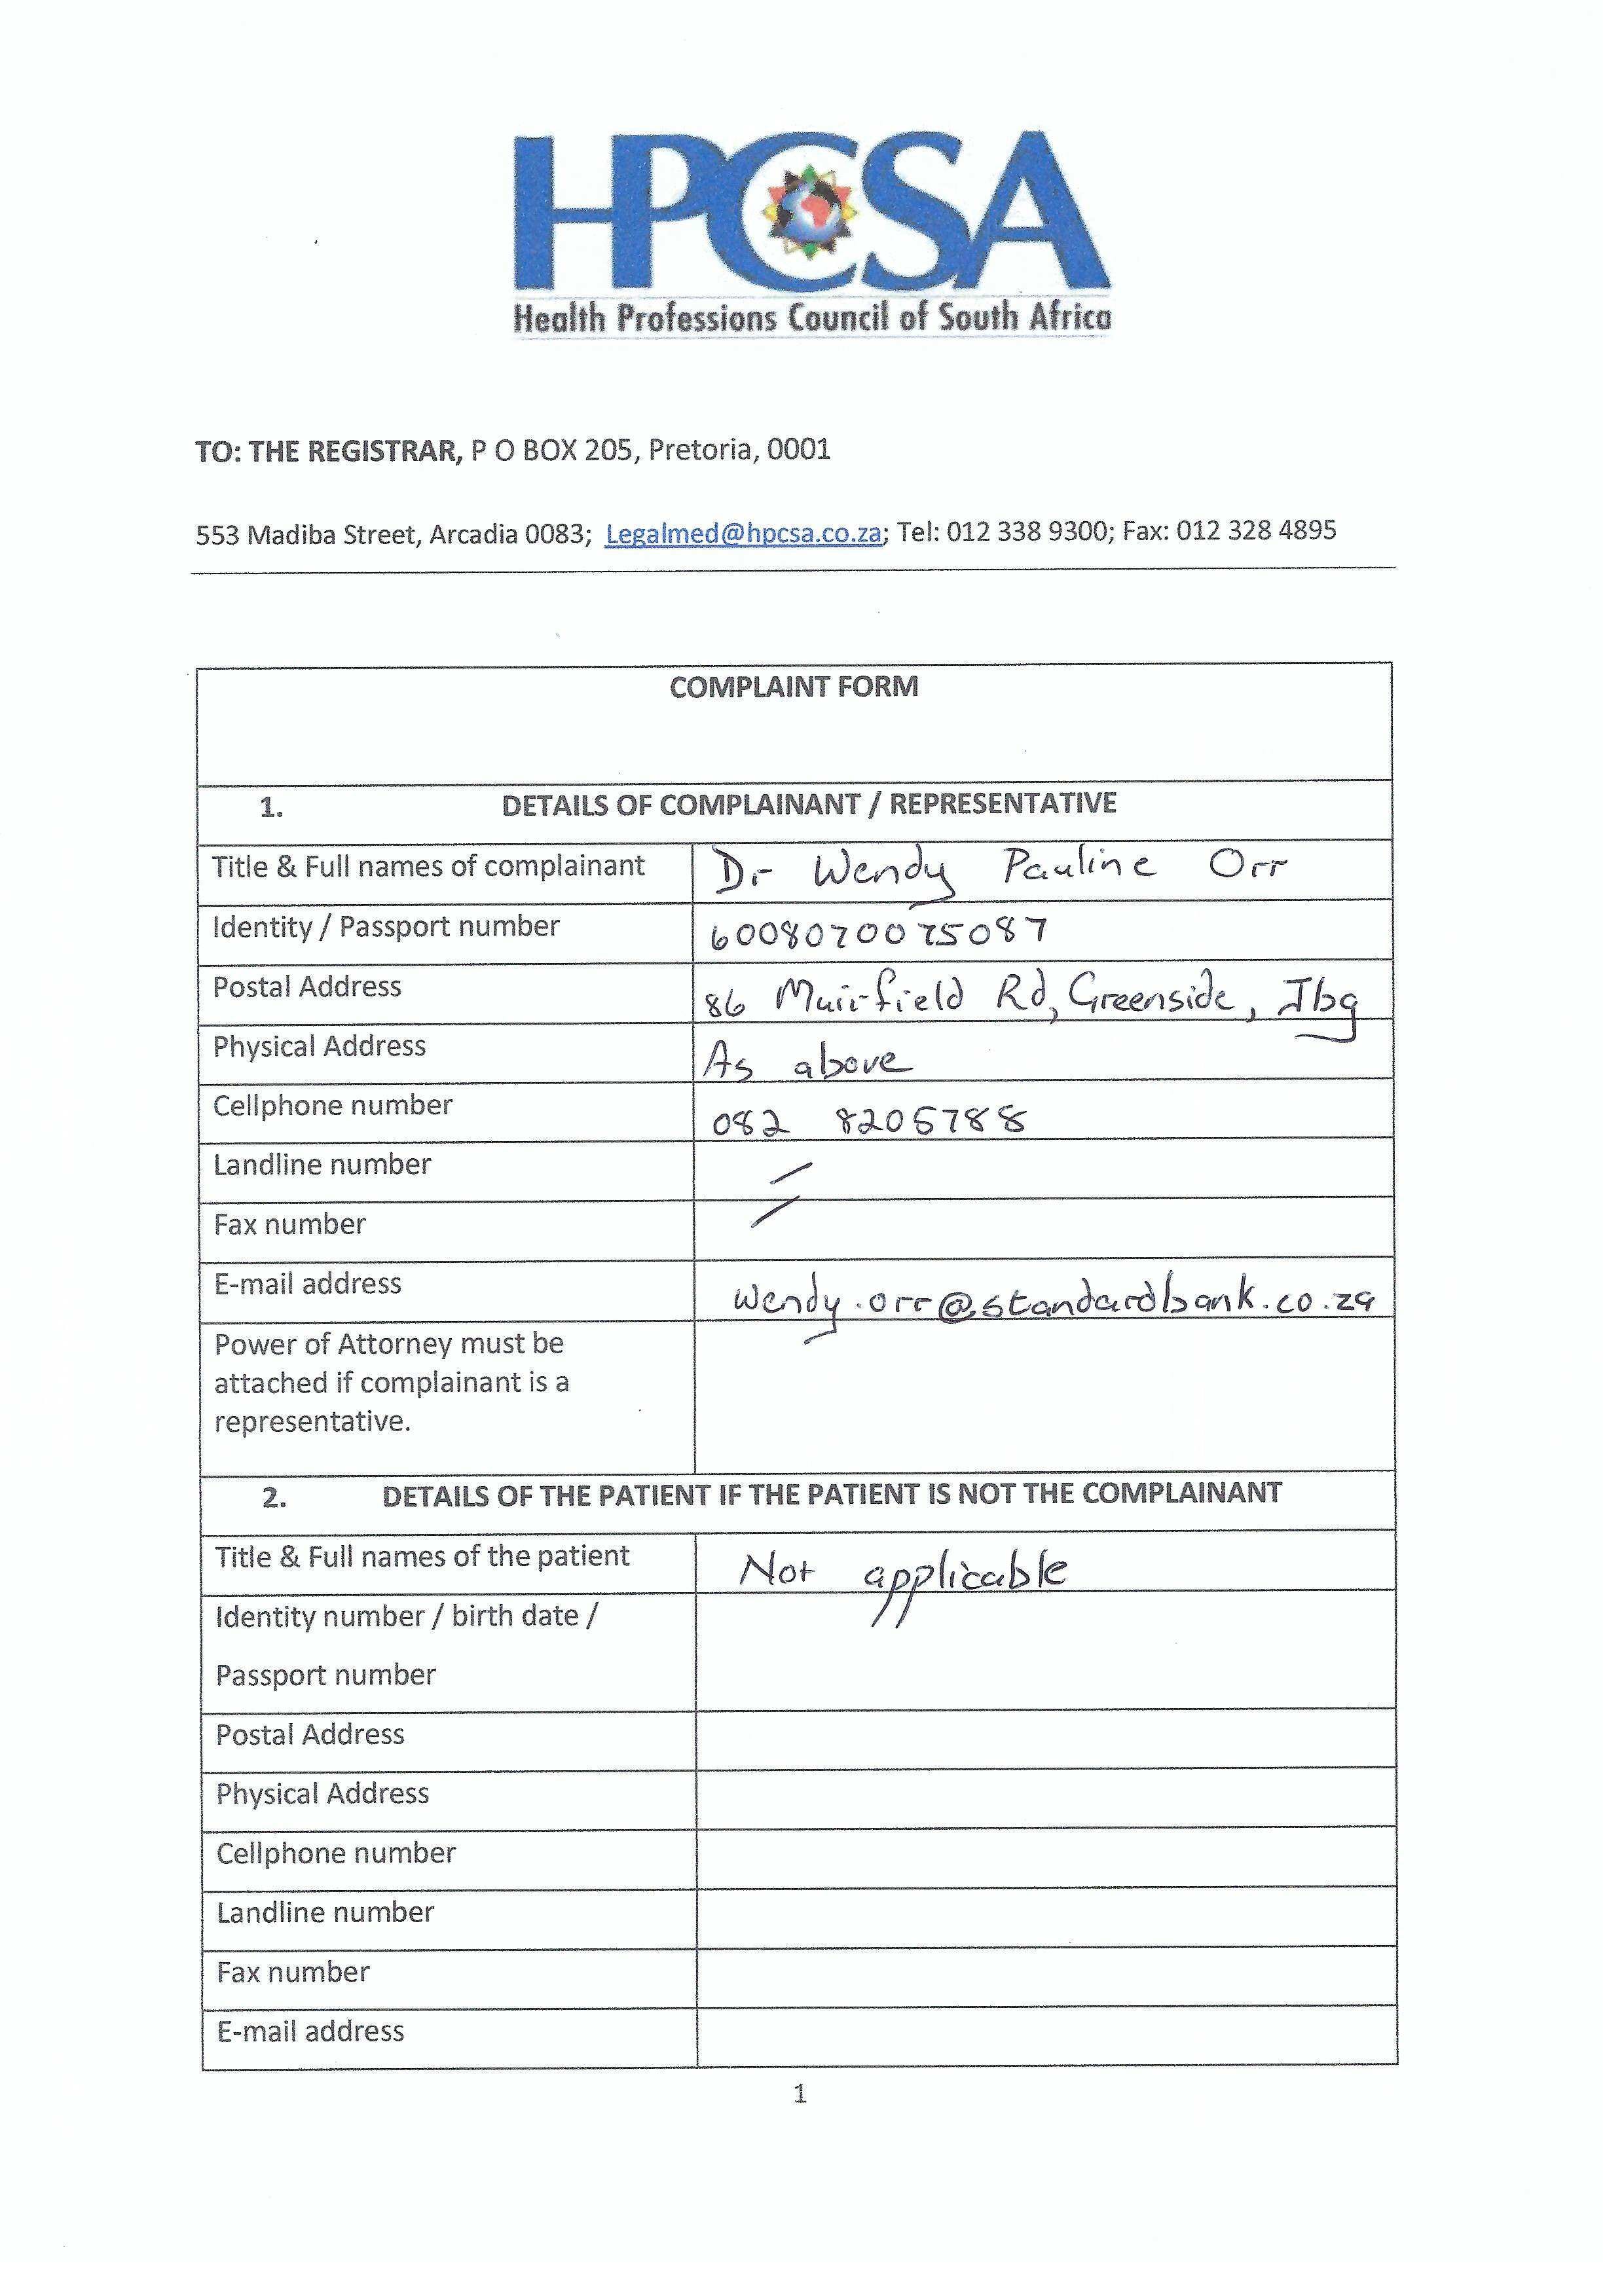 HPCSA
Health Professions Council of South Africa
TO: THE REGISTRAR, P O BOX 205, Pretoria, 0001
553 Madiba Street, Arcadia 0083; Legalmed@hpcsa.co.za; Tel: 012 338 9300; Fax: 012 328 4895
COMPLAINT FORM
1. DETAILS OF COMPLAINANT / REPRESENTATIVE
Title & Full names of complainant Dr Wendy Pauline Orr
Identity / Passport number 6008070075087
Postal Address 86 Muirfield Rd, Greenside, Jbg
Physical Address As above
Cellphone number 082 8205788
Landline number
Fax number
E-mail address wendy.orr@standardbank.co.za
Power of Attorney must be
attached if complainant is a
representative.
2. DETAILS OF THE PATIENT IF THE PATIENT IS NOT THE COMPLAINANT
Title & Full names of the patient Not applicable
Identity number / birth date /
Passport number
Postal Address
Physical Address
Cellphone number
Landline number
Fax number
E-mail address
1